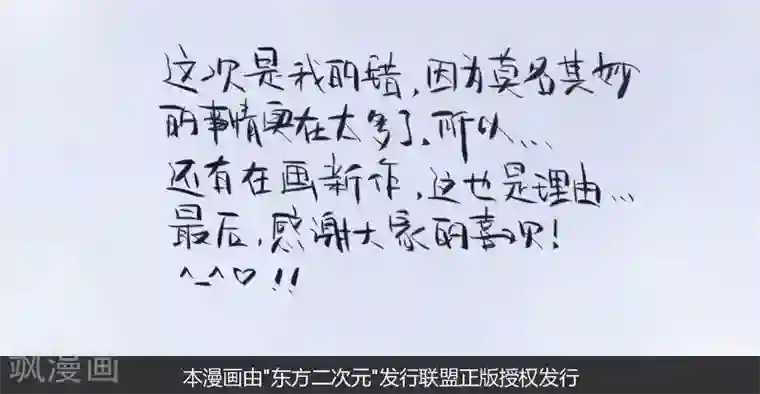 这次是我的错，因为莫名其妙
的事情实在太多了，所以...
还有在画新作，这也是理由...
最后，感谢大家的喜欢！
^_^♡!!
飒漫画
本漫画由"东方二次元"发行联盟正版授权发行